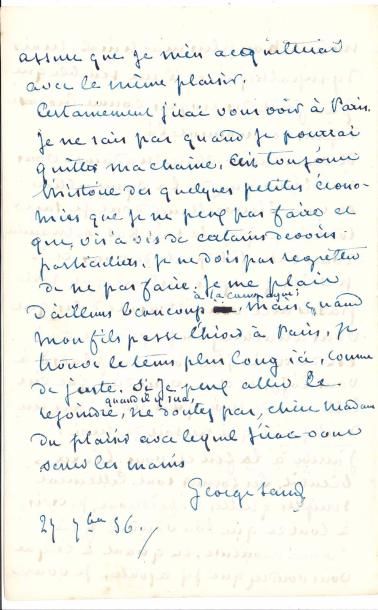 assure que je m'en acquitterai
avec le même plaisir.
Certainement j'irai vous voir à Paris.
Je ne sais pas quand je pourrai
quitter ma chaine. C'est toujours
l'histoire des quelques petites écono-
mies que je ne peux pas faire et
que, vis à vis de certains devoirs
particuliers, je ne dois pas regretter
de ne pas faire. Je me plais
à la campagne
d'ailleurs beaucoup, mais quand
mon fils passe l'hiver à Paris, je
trouve le tems plus long ici, comme
de juste. Si je peux aller le
quand il y sera,
rejoindre, ne doutez pas, chère Madame
du plaisir avec lequel j'irai vous
serrer les mains
George Sand
27 7bre 56.